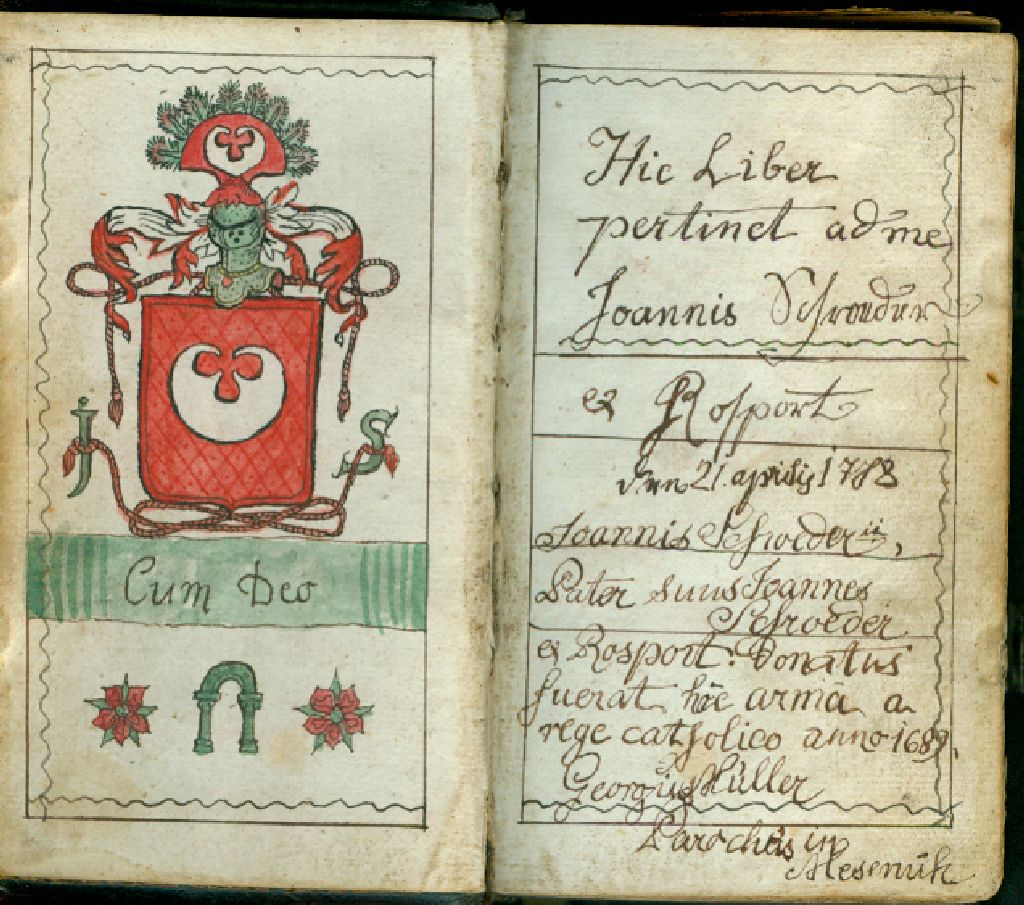 J S
Cum Deo
Hic Liber
pertinet ad me
Joannis Schroeder
ex Rosport
den 21 aprilis 1788
Joannis Schroeder ii,
Pater suus Joannes
Schroeder
ex Rosport. Donatus
fuerat hic arma a
rege catholico anno 1689.
Georgius Müller
Parochus in
Mesenich